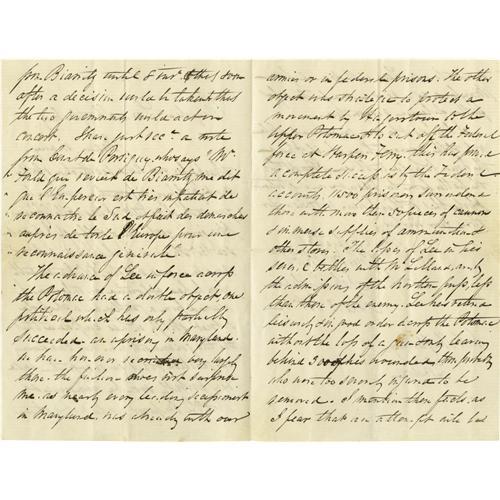 from Biarritz until 8 inst. & they soon
after a decision would be taken & that
the two governments would act in
concert. I have just rec'd a note
from Count de Persigny, who says "Mr
Fould qui revient de Biarritz me dit
que l'Empereur est très impatient de
reconnaitre le Sud & ferait des demarches
auprès de toute l'Europe pour une
reconnaissance générale"
The advance of Lee in force across
the Potomac had a double object, one
political which has only partially
succeeded an uprising in Maryland
we have however recruited very largely
there. the failure does not surprise
me, as nearly every leading secessionist
in Maryland was already with our
armies or in federate prisons. The other
object was strategic to protect a
movement by Hagerstown to the
upper Potomac & to cut off the Federal
force at Harpers Ferry. this has proved
a complete success by the Federal
accounts, 11000 prisoners surrendered
there with more than 50 pieces of cannon
& immense supplies of ammunition &
other stores. The losses of Lee in his
series of battles with McClellan are by
the admissions of the northern press less
than those of the enemy. Lee has retired
leisurely & in good order across the Potomac
without the loss of a gun only leaving
behind 300 of his wounded
who were too severely injured to be
removed. I mention these facts, as
I fear that an attempt will be